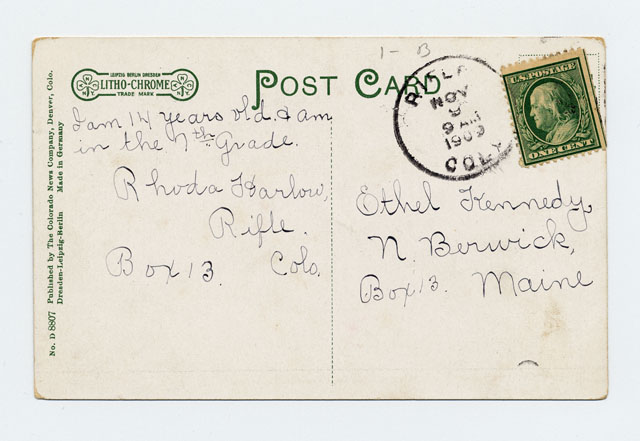 1- B
LEIPZIG BERLIN DRESDEN
LITHO-CHROME
TRADE MARK
POST CARD
NOV
9
9 AM
1909
COLO
U.S. POSTAGE
ONE CENT
I am 14 years old. & am
in the 7th Grade.
Rhoda Harlow,
Rifle.
Box 13. Colo.
Ethel Kennedy,
N. Berwick,
Box 13. Maine
No. D 8807 Published by The Colorado News Company, Denver, Colo.
Dresden-Leipzig-Berlin Made in Germany